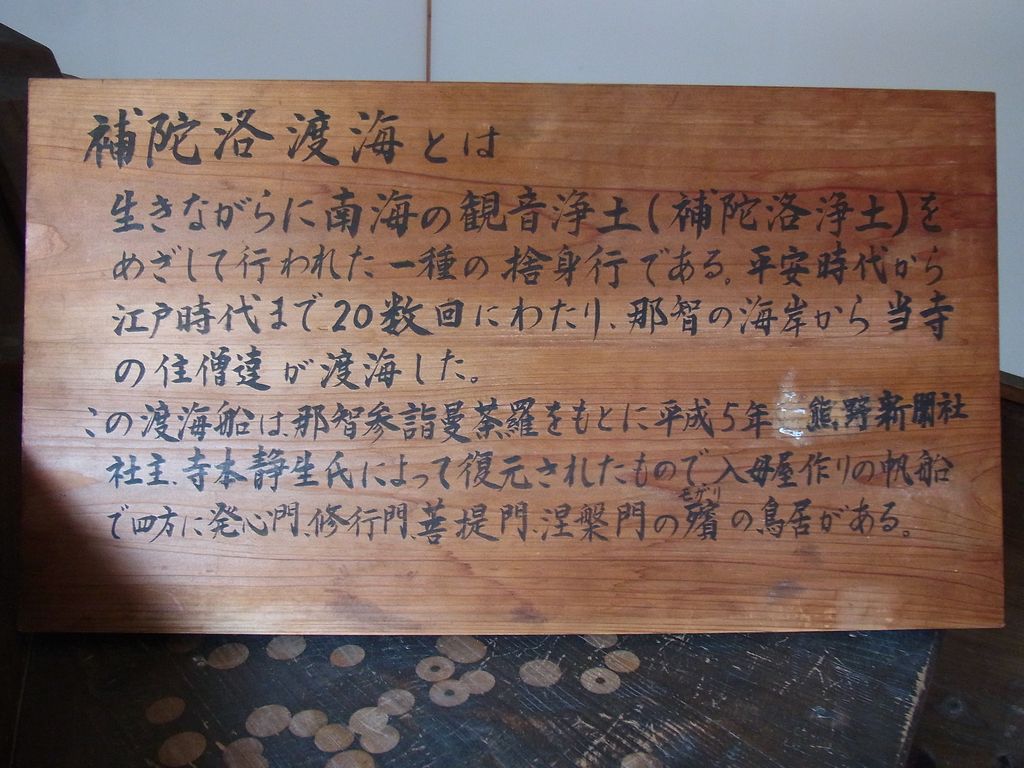 補陀洛渡海とは
生きながらに南海の観音浄土(補陀洛浄土)を
めざして行われた一種の捨身行である。平安時代から
江戸時代まで20数回にわたり、那智の海岸から当寺
の住僧達が渡海した。
この渡海船は、那智参詣曼荼羅をもとに平成5年 熊野新聞社
社主、寺本静生氏によって復元されたもので入母屋作りの帆船
で四方に発心門、修行門、菩提門、涅槃門の殯の鳥居がある。
モガリ